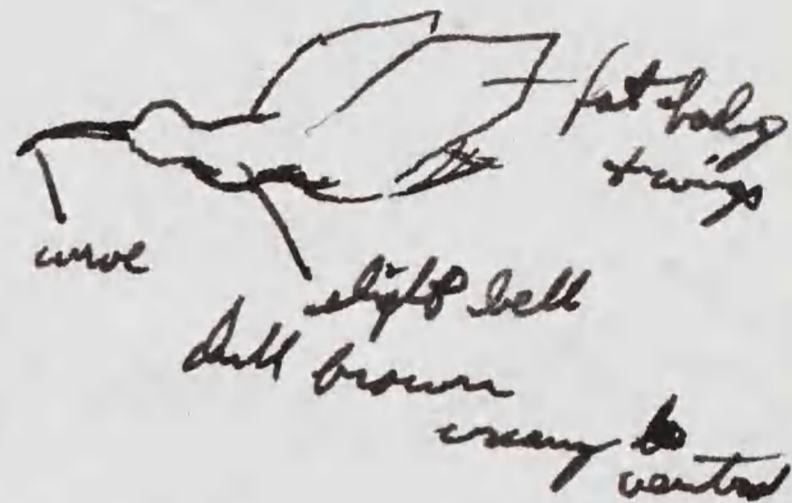 fat body
+ wings
curve
slight bell
dull brown
creamy to
ventral